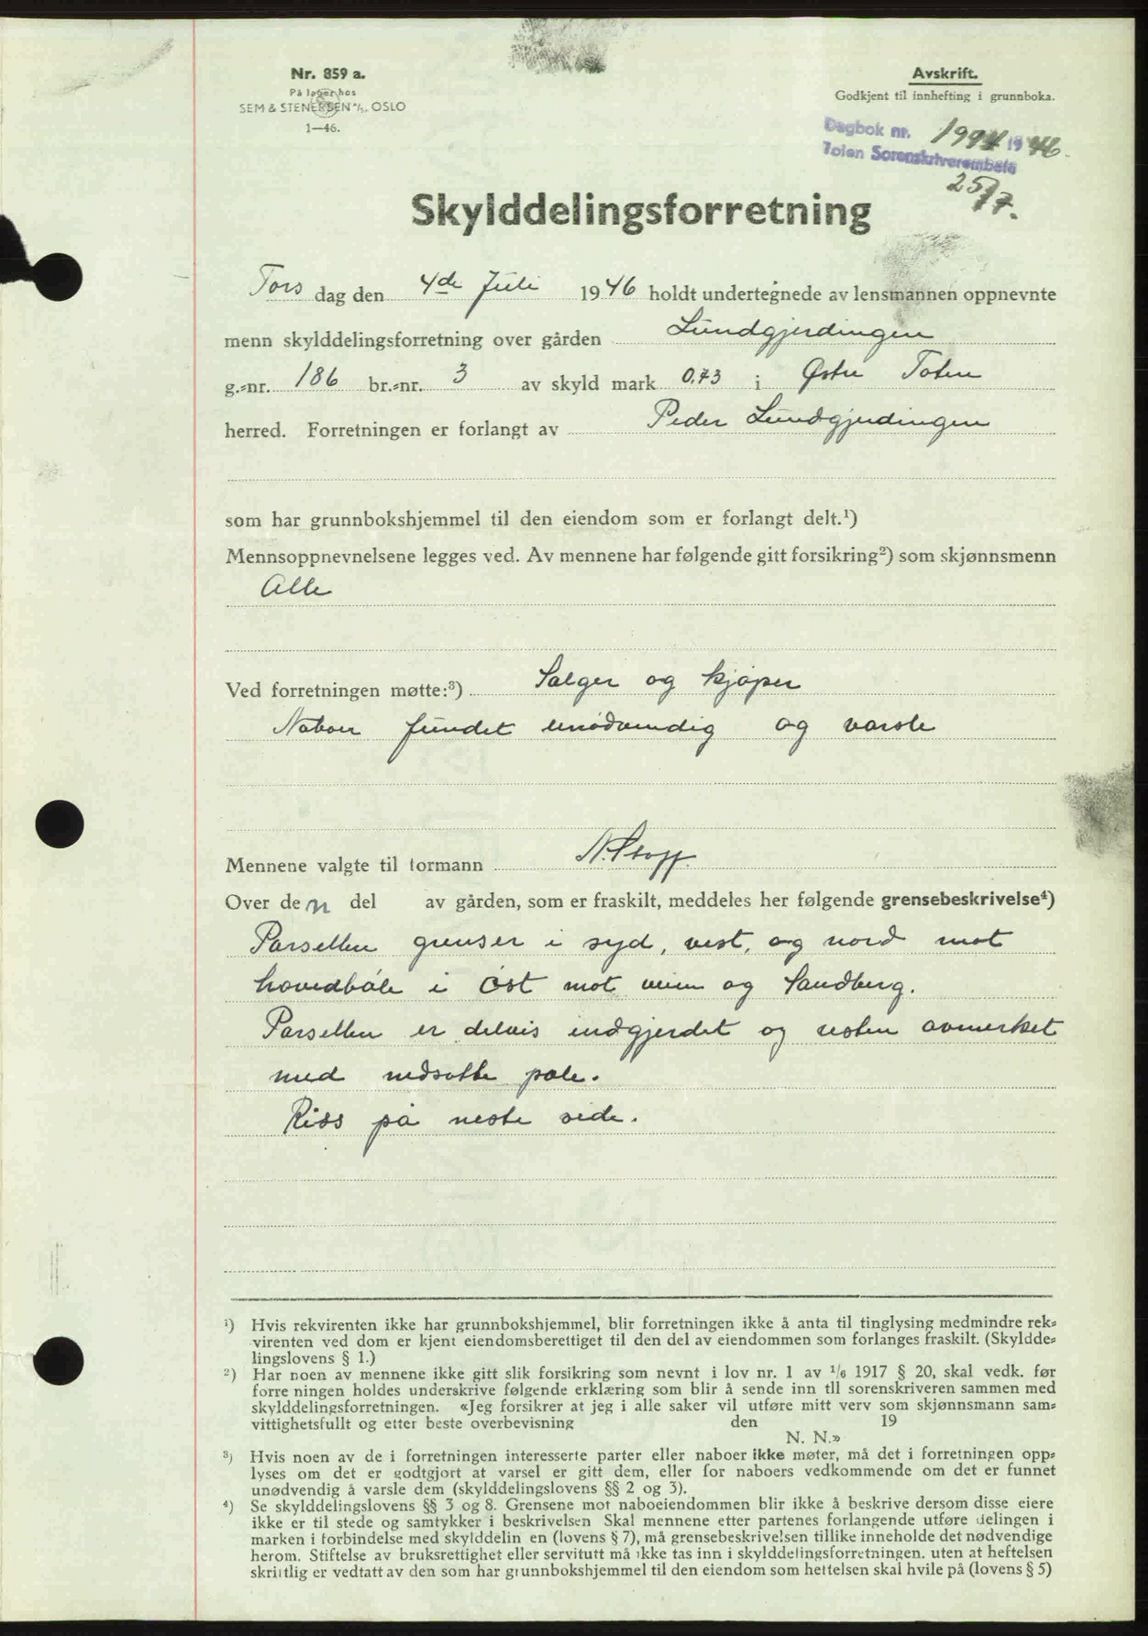 Nr. 859 a.
På lager hos
SEM & STENERSEN A/S, OSLO
1—46.
Avskrift.
Godkjent til innhefting i grunnboka.
Dagbok nr. 1994 1946.
Toten Sorenskriverembete
25/7.
Skylddelingsforretning
Tors dag den 4de Juli 1946 holdt undertegnede av lensmannen oppnevnte
menn skylddelingsforretning over gården Lundgjerdingen
g.-nr. 186 br.-nr. 3 av skyld mark 0,73 i Østre Toten
herred. Forretningen er forlangt av Peder Lundgjerdingen
som har grunnbokshjemmel til den eiendom som er forlangt delt.¹)
Mennsoppnevnelsene legges ved. Av mennene har følgende gitt forsikring²) som skjønnsmenn
Alle
Ved forretningen møtte:³) Sælger og kjøper
Naboer fundet unødvendig og varsle
Mennene valgte til formann
Over den del av gården, som er fraskilt, meddeles her følgende grensebeskrivelse⁴)
Parsellen grenser i syd, vest, og nord mot
hovedbøle i øst mot veien og Sandberg.
Parsellen er delvis indgjerdet og resten avmerket
med nedsatte pæle.
Riss på neste side.
¹) Hvis rekvirenten ikke har grunnbokshjemmel, blir forretningen ikke å anta til tinglysing medmindre rek-
virenten ved dom er kjent eiendomsberettiget til den del av eiendommen som forlanges fraskilt. (Skyldde-
lingslovens § 1.)
²) Har noen av mennene ikke gitt slik forsikring som nevnt i lov nr. 1 av 1/6 1917 § 20, skal vedk. før
forre ningen holdes underskrive følgende erklæring som blir å sende inn til sorenskriveren sammen med
skylddelingsforretningen. «Jeg forsikrer at jeg i alle saker vil utføre mitt verv som skjønnsmann sam-
vittighetsfullt og etter beste overbevisning den 19
N. N.»
³) Hvis noen av de i forretningen interesserte parter eller naboer ikke møter, må det i forretningen opp-
lyses om det er godtgjort at varsel er gitt dem, eller for naboers vedkommende om det er funnet
unødvendig å varsle dem (skylddelingslovens §§ 2 og 3).
⁴) Se skylddelingslovens §§ 3 og 8. Grensene mot naboeiendommen blir ikke å beskrive dersom disse eiere
ikke er til stede og samtykker i beskrivelsen Skal mennene etter partenes forlangende utføre delingen i
marken i forbindelse med skylddelin en (lovens § 7), må grensebeskrivelsen tillike inneholde det nødvendige
herom. Stiftelse av bruksrettighet eller servitutt må ikke tas inn i skylddelingsforretningen. uten at heftelsen
skriftlig er vedtatt av den som har grunnbokshjemmel til den eiendom som heftelsen skal hvile på (lovens § 5)